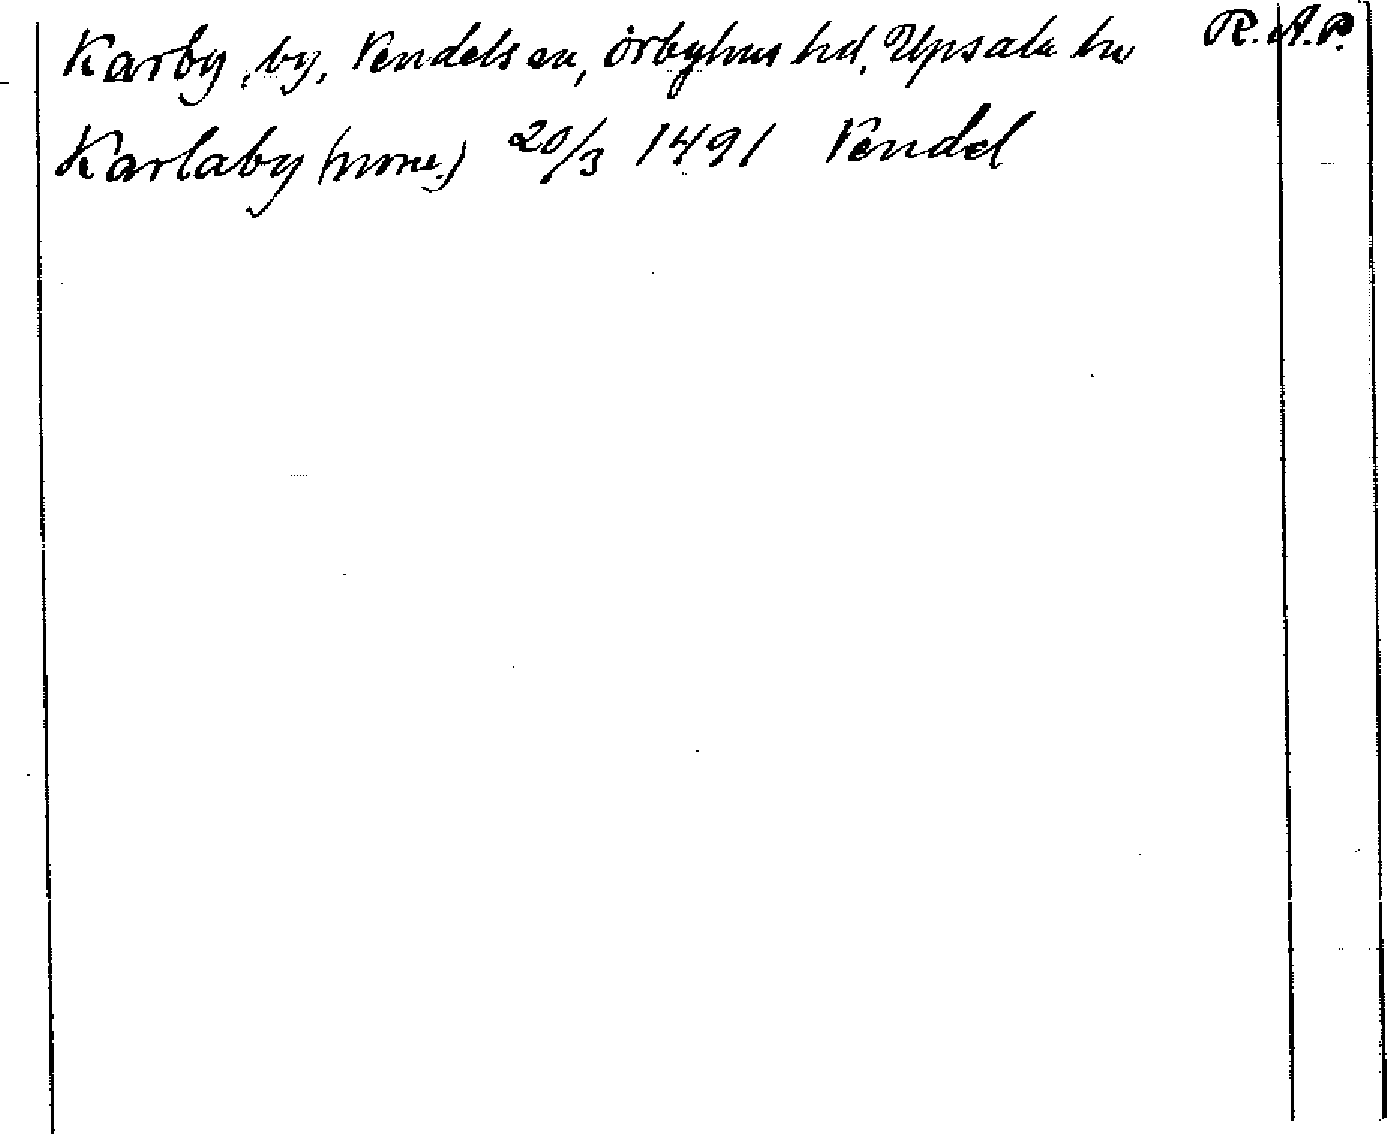 Karby, by, Vendels sn, Örbyhus hd, Upsala län R.A.P.
Karlaby (nom.) 20/3 1491 Vendel